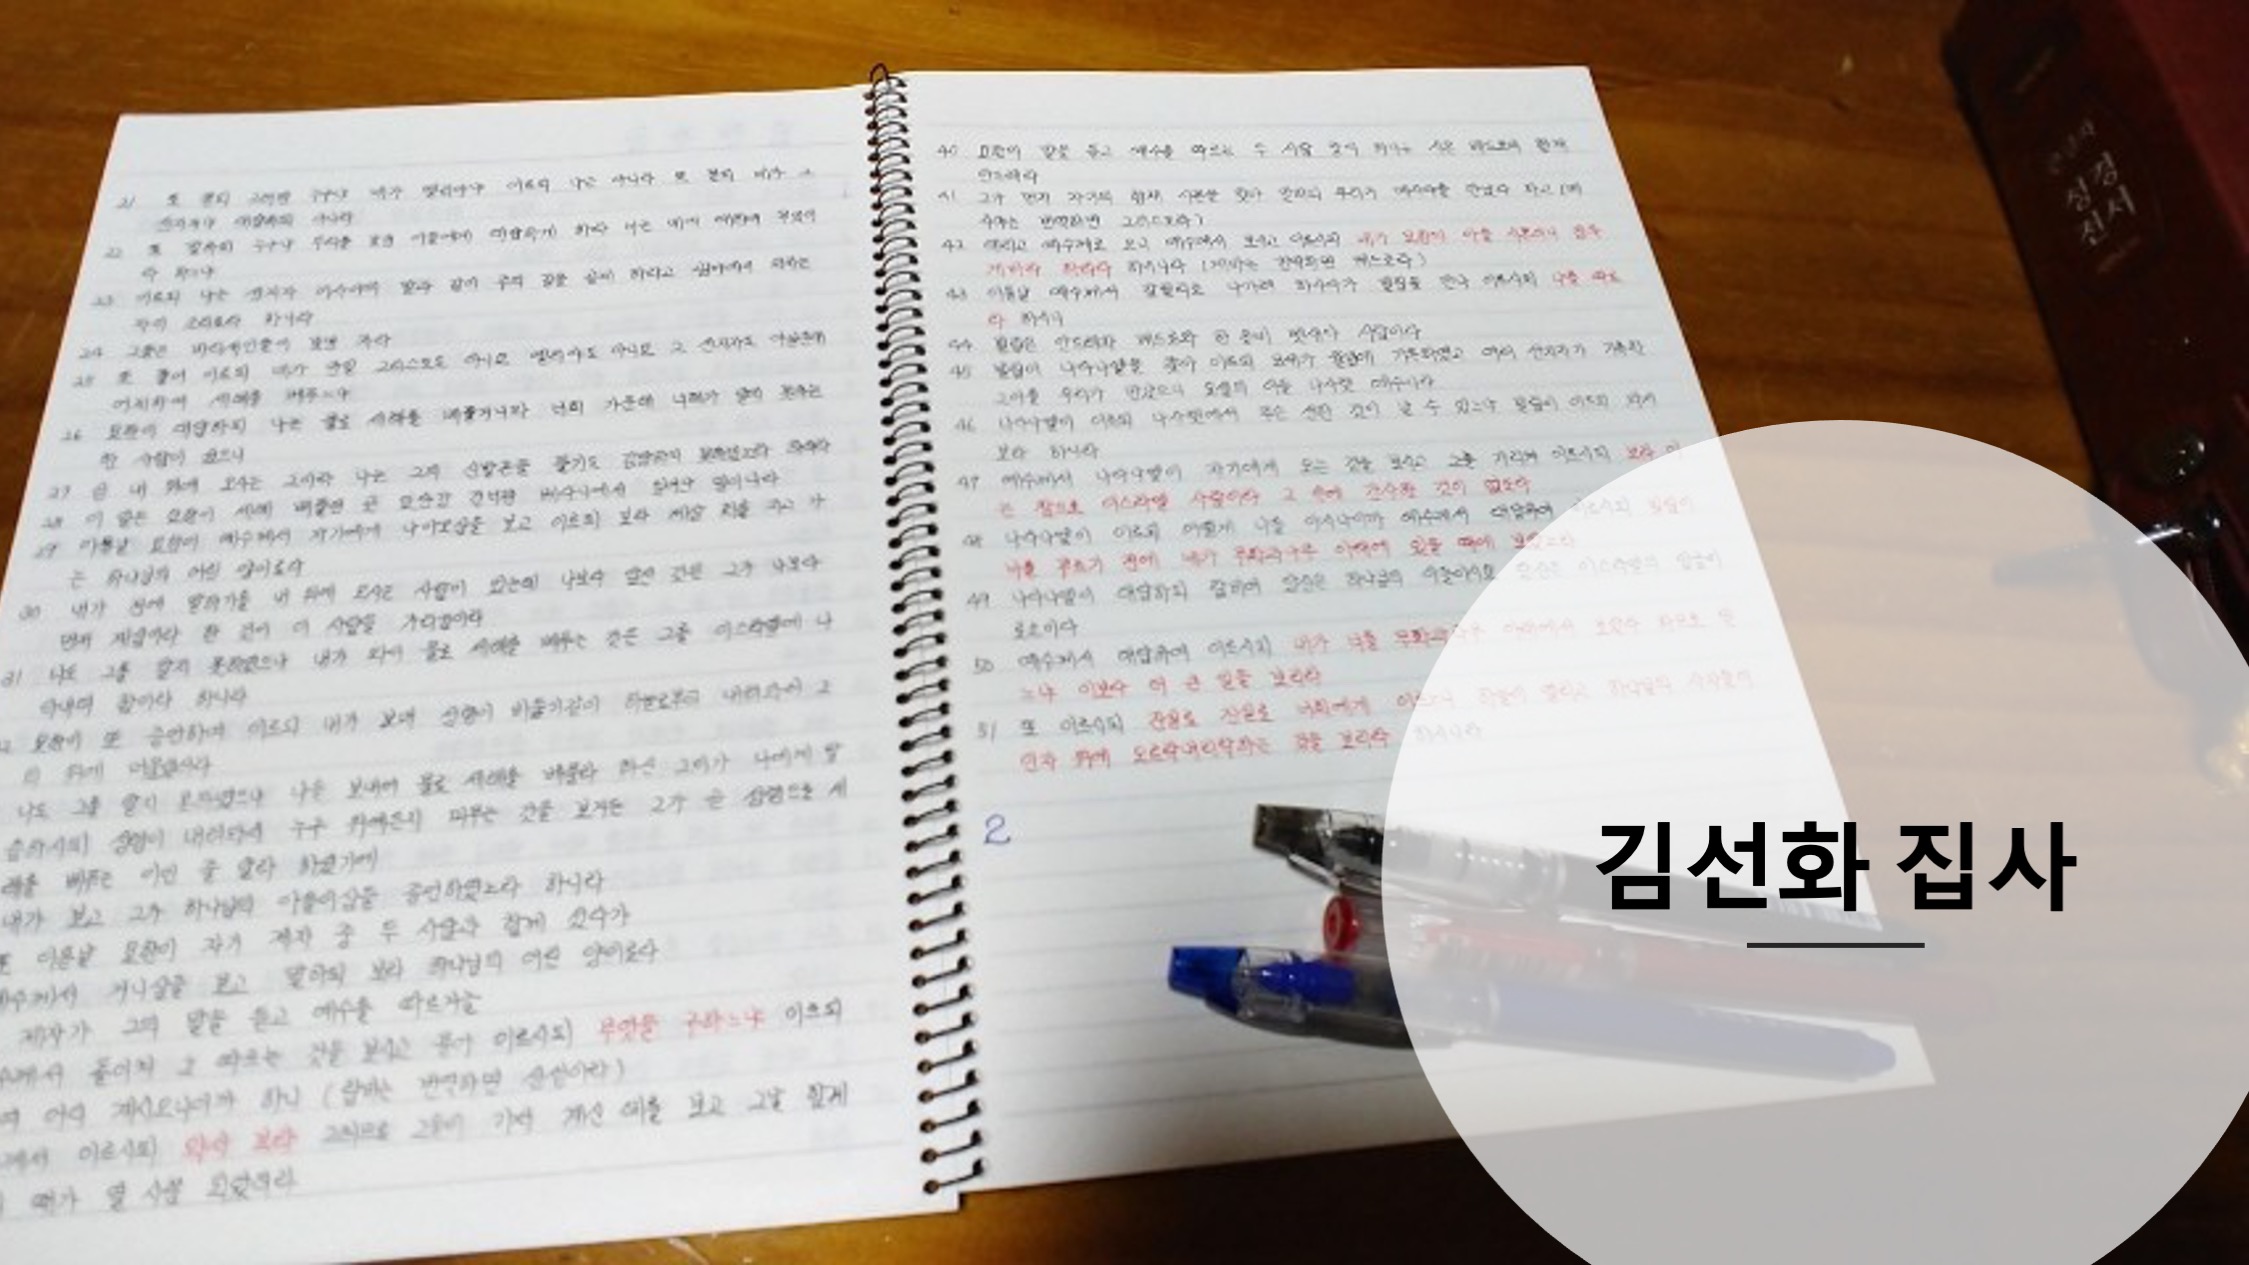 21 또 묻되 그러면 누구냐 네가 엘리야냐 이르되 나는 아니라 또 묻되 네가 그
선지자냐 대답하되 아니라
22 또 말하되 누구냐 우리를 보낸 이들에게 대답하게 하라 너는 네게 대하여 무엇이
라 하느냐
23 이르되 나는 선지자 이사야의 말과 같이 주의 길을 곧게 하라고 광야에서 외치는
자의 소리로라 하니라
24 그들은 바리새인들이 보낸 자라
25 또 물어 이르되 네가 만일 그리스도도 아니요 엘리야도 아니요 그 선지자도 아닐진대
어찌하여 세례를 베푸느냐
26 요한이 대답하되 나는 물로 세례를 베풀거니와 너희 가운데 너희가 알지 못하는
한 사람이 섰으니
27 곧 내 뒤에 오시는 그이라 나는 그의 신발끈을 풀기도 감당하지 못하겠노라 하더라
28 이 일은 요한이 세례 베풀던 곳 요단강 건너편 베다니에서 일어난 일이니라
29 이튿날 요한이 예수께서 자기에게 나아오심을 보고 이르되 보라 세상 죄를 지고 가
는 하나님의 어린 양이로다
30 내가 전에 말하기를 내 뒤에 오시는 사람이 있는데 나보다 앞선 것은 그가 나보다
먼저 계심이라 한 것이 이 사람을 가리킴이라
31 나도 그를 알지 못하였으나 내가 와서 물로 세례를 베푸는 것은 그를 이스라엘에 나
타내려 함이라 하니라
요한이 또 증언하여 이르되 내가 보매 성령이 비둘기같이 하늘로부터 내려와서 그
의 위에 머물렀더라
나도 그를 알지 못하였으나 나를 보내어 물로 세례를 베풀라 하신 그이가 나에게 말
씀하시되 성령이 내려와서 누구 위에든지 머무는 것을 보거든 그가 곧 성령으로 세
례를 베푸는 이인 줄 알라 하셨기에
내가 보고 그가 하나님의 아들이심을 증언하였노라 하니라
또 이튿날 요한이 자기 제자 중 두 사람과 함께 섰다가
예수께서 거니심을 보고 말하되 보라 하나님의 어린 양이로다
제자가 그의 말을 듣고 예수를 따르거늘
돌이켜 그 따르는 것을 보시고 물어 이르시되 무엇을 구하느냐 이르되
어디 계시오니이까 하니 (랍비는 번역하면 선생이라)
이르시되 와서 보라 그러므로 그들이 가서 계신 데를 보고 그날 함께
때가 열 시쯤 되었더라
40 요한의 말을 듣고 예수를 따르는 두 사람 중의 하나는 시몬 베드로의 형제
안드레라
41 그가 먼저 자기의 형제 시몬을 찾아 말하되 우리가 메시야를 만났다 하고 (메
시야는 번역하면 그리스도라)
42 데리고 예수께로 오니 예수께서 보시고 이르시되 네가 요한의 아들 시몬이니 장차
게바라 하리라 하시니라 (게바는 번역하면 베드로라)
43 이튿날 예수께서 갈릴리로 나가려 하시다가 빌립을 만나 이르시되 나를 따르
라 하시니
44 빌립은 안드레와 베드로와 한 동네 벳새다 사람이라
45 빌립이 나다나엘을 찾아 이르되 모세가 율법에 기록하였고 여러 선지자가 기록한
그이를 우리가 만났으니 요셉의 아들 나사렛 예수니라
46 나다나엘이 이르되 나사렛에서 무슨 선한 것이 날 수 있느냐 빌립이 이르되 와서
보라 하니라
47 예수께서 나다나엘이 자기에게 오는 것을 보시고 그를 가리켜 이르시되 보라 이
는 참으로 이스라엘 사람이라 그 속에 간사한 것이 없도다
48 나다나엘이 이르되 어떻게 나를 아시나이까 예수께서 대답하여 이르시되 빌립이
너를 부르기 전에 네가 무화과나무 아래에 있을 때에 보았노라
49 나다나엘이 대답하되 랍비여 당신은 하나님의 아들이시요 당신은 이스라엘의 임금이
로소이다
50 예수께서 대답하여 이르시되 내가 너를 무화과나무 아래에서 보았다 하므로 믿
느냐 이보다 더 큰 일을 보리라
51 또 이르시되 진실로 진실로 너희에게 이르노니 하늘이 열리고 하나님의 사자들이
인자 위에 오르락내리락하는 것을 보리라 하시니라
2
성경
전서
김선화 집사